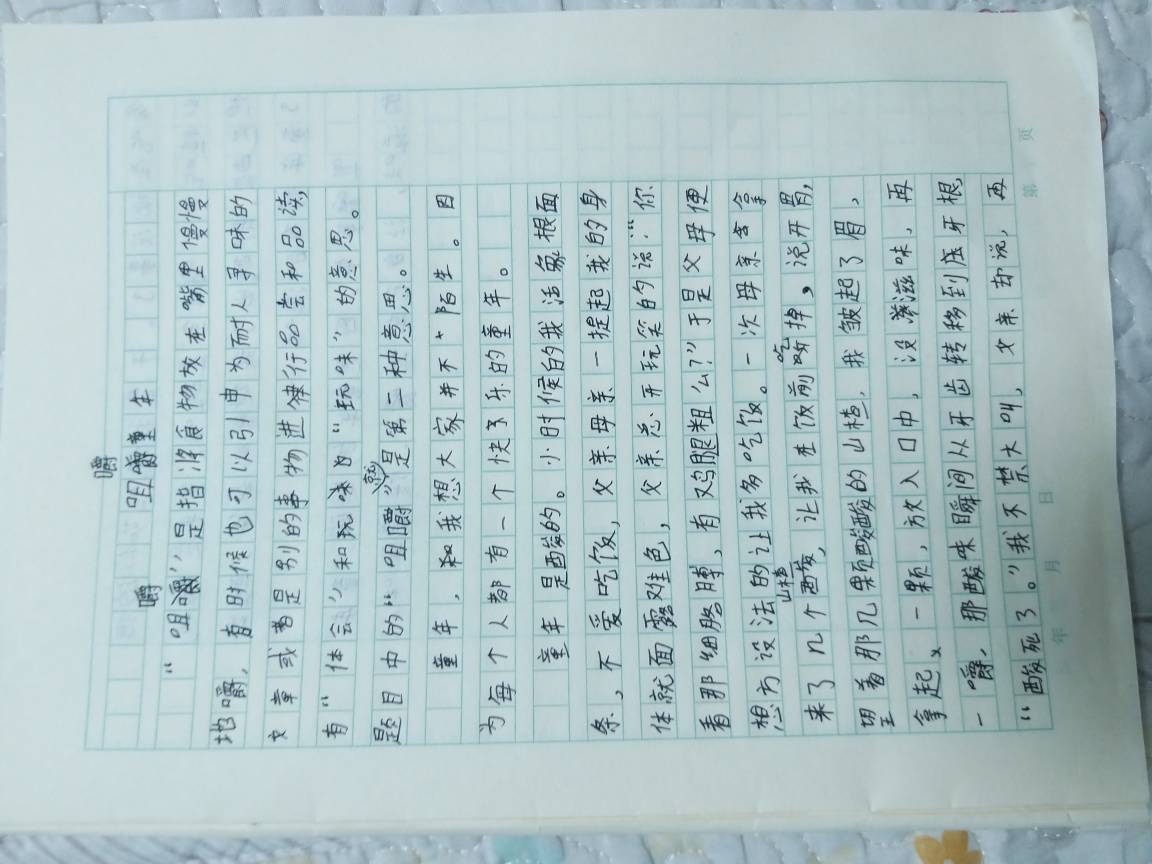 咀嚼童年
“咀嚼”是指将食物放在嘴里慢慢
地嚼,有时候也可以引申为耐人寻味的
文章或者是别的事物进行品尝和品读,
有“体会”和玩味“玩味”的意思。
题目中的“咀嚼”就是第二种意思。
童年,我想大家并不陌生。因
为每个人都有一个快乐的童年。
童年是酸的。小时候的我活象根面
条,不爱吃饭,父亲母亲一提起我的身
体就面露难色,父亲总开玩笑的说:“你
看那细胳膊,有鸡腿粗么?”于是父母便
想方设法的让我多吃饭。一次母亲拿
来了几个山楂,让我在饭前吃掉,说开胃,
望着那几颗酸酸的山楂,我皱起了眉,
拿起一颗,放入口中,没滋味,再
一嚼,那酸味瞬间从牙齿转移到底牙根,
“酸死了。”我不禁大叫,父亲却说,再
第 页
年 月 日